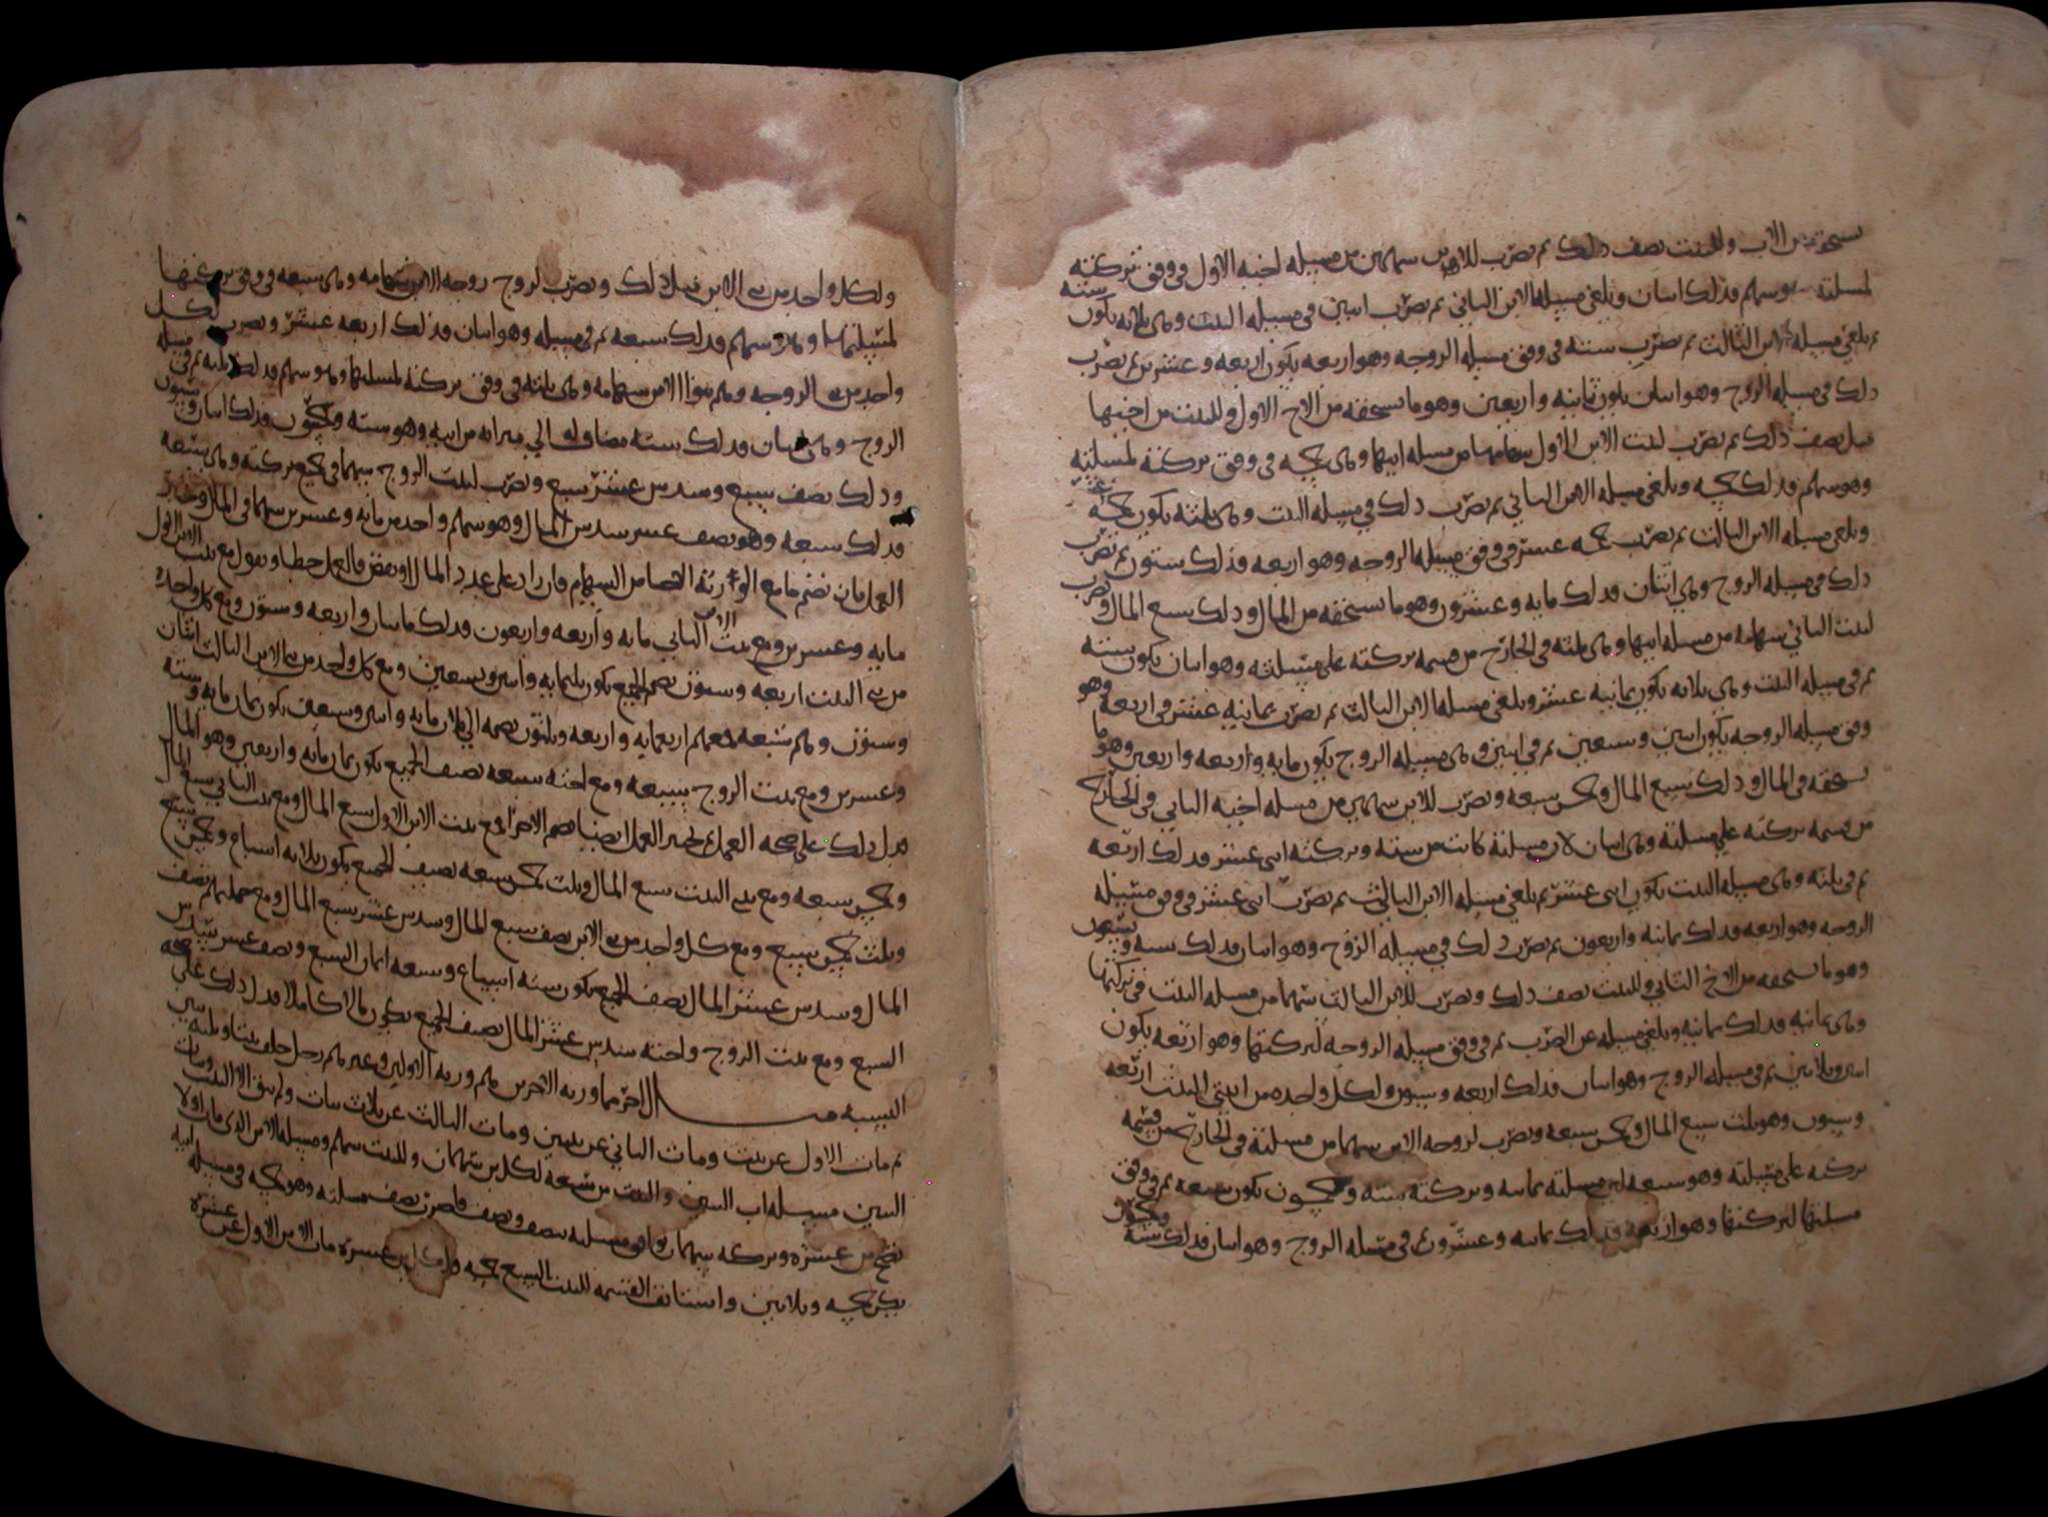 من الاب وللبنت نصف ذلك ثم تضرب للابن سهمين من مسيله اخيه الاول في وفق تركته
لمسلته وسهم فذلك اثنان وتلغي مسيله الابن الثاني ثم تضرب اثنين في مسيله البنت وهي ثلاثه يكون سته
ثم تلغي مسيله الابن الثالث ثم تضرب سته في وفق مسيله الروجه وهو اربعه يكون اربعه وعشرين ثم تضرب
ذلك في مسيله الروج وهو اثنان يكون ثمانيه واربعين وهو ما يستحقه من الاخ الاول وللبنت من اخيها
مثل نصف ذلك ثم تضرب لبنت الابن الاول سهامها من مسله ابيها وهي خمسه في وفق تركته لمسلته
وهو سهم فذلك خمسه وتلغي مسيله الابن الثاني ثم تضرب ذلك في مسيله البنت وهي ثلثه يكون خمسه عشر
وتلغي مسيله الابن الثالث ثم تضرب خمسه عشر في وفق مسيله الروجه وهو اربعه فذلك ستون ثم تضرب
ذلك في مسيله الروج وهي اثنان فذلك مايه وعشرون وهو ما تستحقه من المال وذلك سبع المال وتضرب
لبنت الثاني سهامه من مسله ابيها وهي ثلثه في الخارج من قسمه تركته على مسيلته وهو اثنان يكون سته
ثم في مسيله البنت وهي ثلاثه يكون ثمانيه عشر وتلغي مسيله الابن الثالث ثم تضرب ثمانيه عشر في اربعه وهو
وفق مسيله الروجه يكون اثنين وسبعين ثم في اثنين وهي مسيله الروج يكون مايه واربعه واربعين وهو ما
تستحقه في المال وذلك سبع المال وخمس سبعه وتضرب للابن سهمين من مسله اخيه الثاني في الخارج
من قسمه تركته علي مسلته وهي اثنان لان مسيلته كانت من سته وتركته اثني عشر فذلك اربعه
ثم في ثلثه وهي مسيله البنت يكون اثني عشر ثم تلغي مسيله الابن الثالث ثم تضرب اثني عشر في وفق مسيله
الروجه وهو اربعه فذلك ثمانيه واربعون ثم تضرب ذلك في مسيله الزوج وهو اثنان فذلك سته وتسعون
وهو ما تستحقه من الاخ الثاني وللبنت نصف ذلك وتضرب للابن الثالث سهما من مسيله البنت في تركتها
وهي ثمانيه فذلك ثمانيه وتلغي مسيله عن الضرب ثم في وفق مسيله الروجه لتركتها وهو اربعه يكون
اثنين وثلاثين ثم في مسيله الروج وهو اثنان فذلك اربعه وستون ولكل واحده من ابنتي البنت اربعه
وستون وهو ثلث سبع المال وخمس سبعه وتضرب لروجه الابن سهما من مسلته في الخارج من قسمه
تركته على مسيلته وهو سبعه لان مسيلته ثمانيه وتركته سته وخمسون يكون سبعه ثم في وفق
مسلتها لتركتها وهو اربعه فذلك ثمانيه وعشرون في مسله الروج وهو اثنان فذلك سته وخمسون
ولكل واحد من بني الابن مثل ذلك وتضرب لروج روجه الابن سهامه وهي سبعه في وفق تركتها
لمسيلتها وهو سهم فذلك سبعه ثم في مسيله وهو اثنان فذلك اربعه عشر وتضرب لكل
واحد من بني الروجه وهم بنوا الابن سهامه وهي ثلثه في وفق تركته لمسلتها وهو سهم فذلك ثلثه ثم في مسيله
الروج وهي اثنان فذلك سته مضاف له الي ميراثه من ابيه وهو سته وخمسون فذلك اثنان وستون
وذلك نصف سبع وسدس عشر سبع وتضرب لبنت الروج سهما في جميع تركته وهي سبعه
فذلك سبعه وهو نصف عشر سدس المال وهو سهم واحد من مايه وعشرين سهما في المال
العمل بان تضم ما مع الوارثه انصبا من السهام فان زاد على عدد المال او نقص فالعمل خطا وتقول مع بنت الابن الاول
مايه وعشرين ومع بنت الابن الثاني مايه واربعه واربعون فذلك مايتان واربعه وستون ومع كل واحده
من بنتي البنت اربعه وستون نصم الجميع يكون ثلثمايه واثنين وتسعين ومع كل واحد من بني الابن الثالث اثنان
وستون وهم سبعه معهم اربعمايه واربعه وثلثون نضمه الى ثلاثمايه واثنين وتسعين يكون ثمان مايه وسته
وعشرين ومع بنت الروج سبعه ومع اخته سبعه نصيف الجميع يكون ثمان مايه واربعين وهو المال
فدل ذلك على صحه العمل انصباهم الاجزا مع بنت الابن الاول سبع المال ومع بنت الثاني سبع المال
وخمس سبعه ومع بنتي البنت سبع المال وثلث خمس سبعه نصيف الجميع يكون ثلاثه اسباع وخمس سبع
وثلث خمس سبع ومع كل واحد من بني الابن نصف سبع المال وسدس عشر سبع المال ومع جملتهم نصف
المال وسدس عشر المال نصف الجميع يكون سته اسباع وسبعه اثمان السبع ونصف عشر سدس
السبع ومع بنت الروج واخته سدس عشر المال نصيف الجميع يكون مالا كاملا فدل ذلك على صحه
النسبه مسال اخر مما ورثه الاخرين هم ورثه الاولين وغيرهم رجل خلف بنتا وثلثه بنين
ثم مات الاول عن بنت ومات الثاني عن بنتين ومات الثالث عن ثلاث بنات ولم يبق الا البنت وبنات
البنين مسيله اب البنين والبنت من سبعه لكل ابن سهمان وللبنت سهم ومسيله الابن الذي مات اولا
تصح من عشره وتركته سهمان توافق مسيلته بنصف ونصف فاضرب نصف مسلته وهو خمسه في مسيله ابيه
يكن خمسه وثلاثين واستانف القسمه للبنت السبع خمسه ولكل ابن عشره مات الابن الاول عن عشره